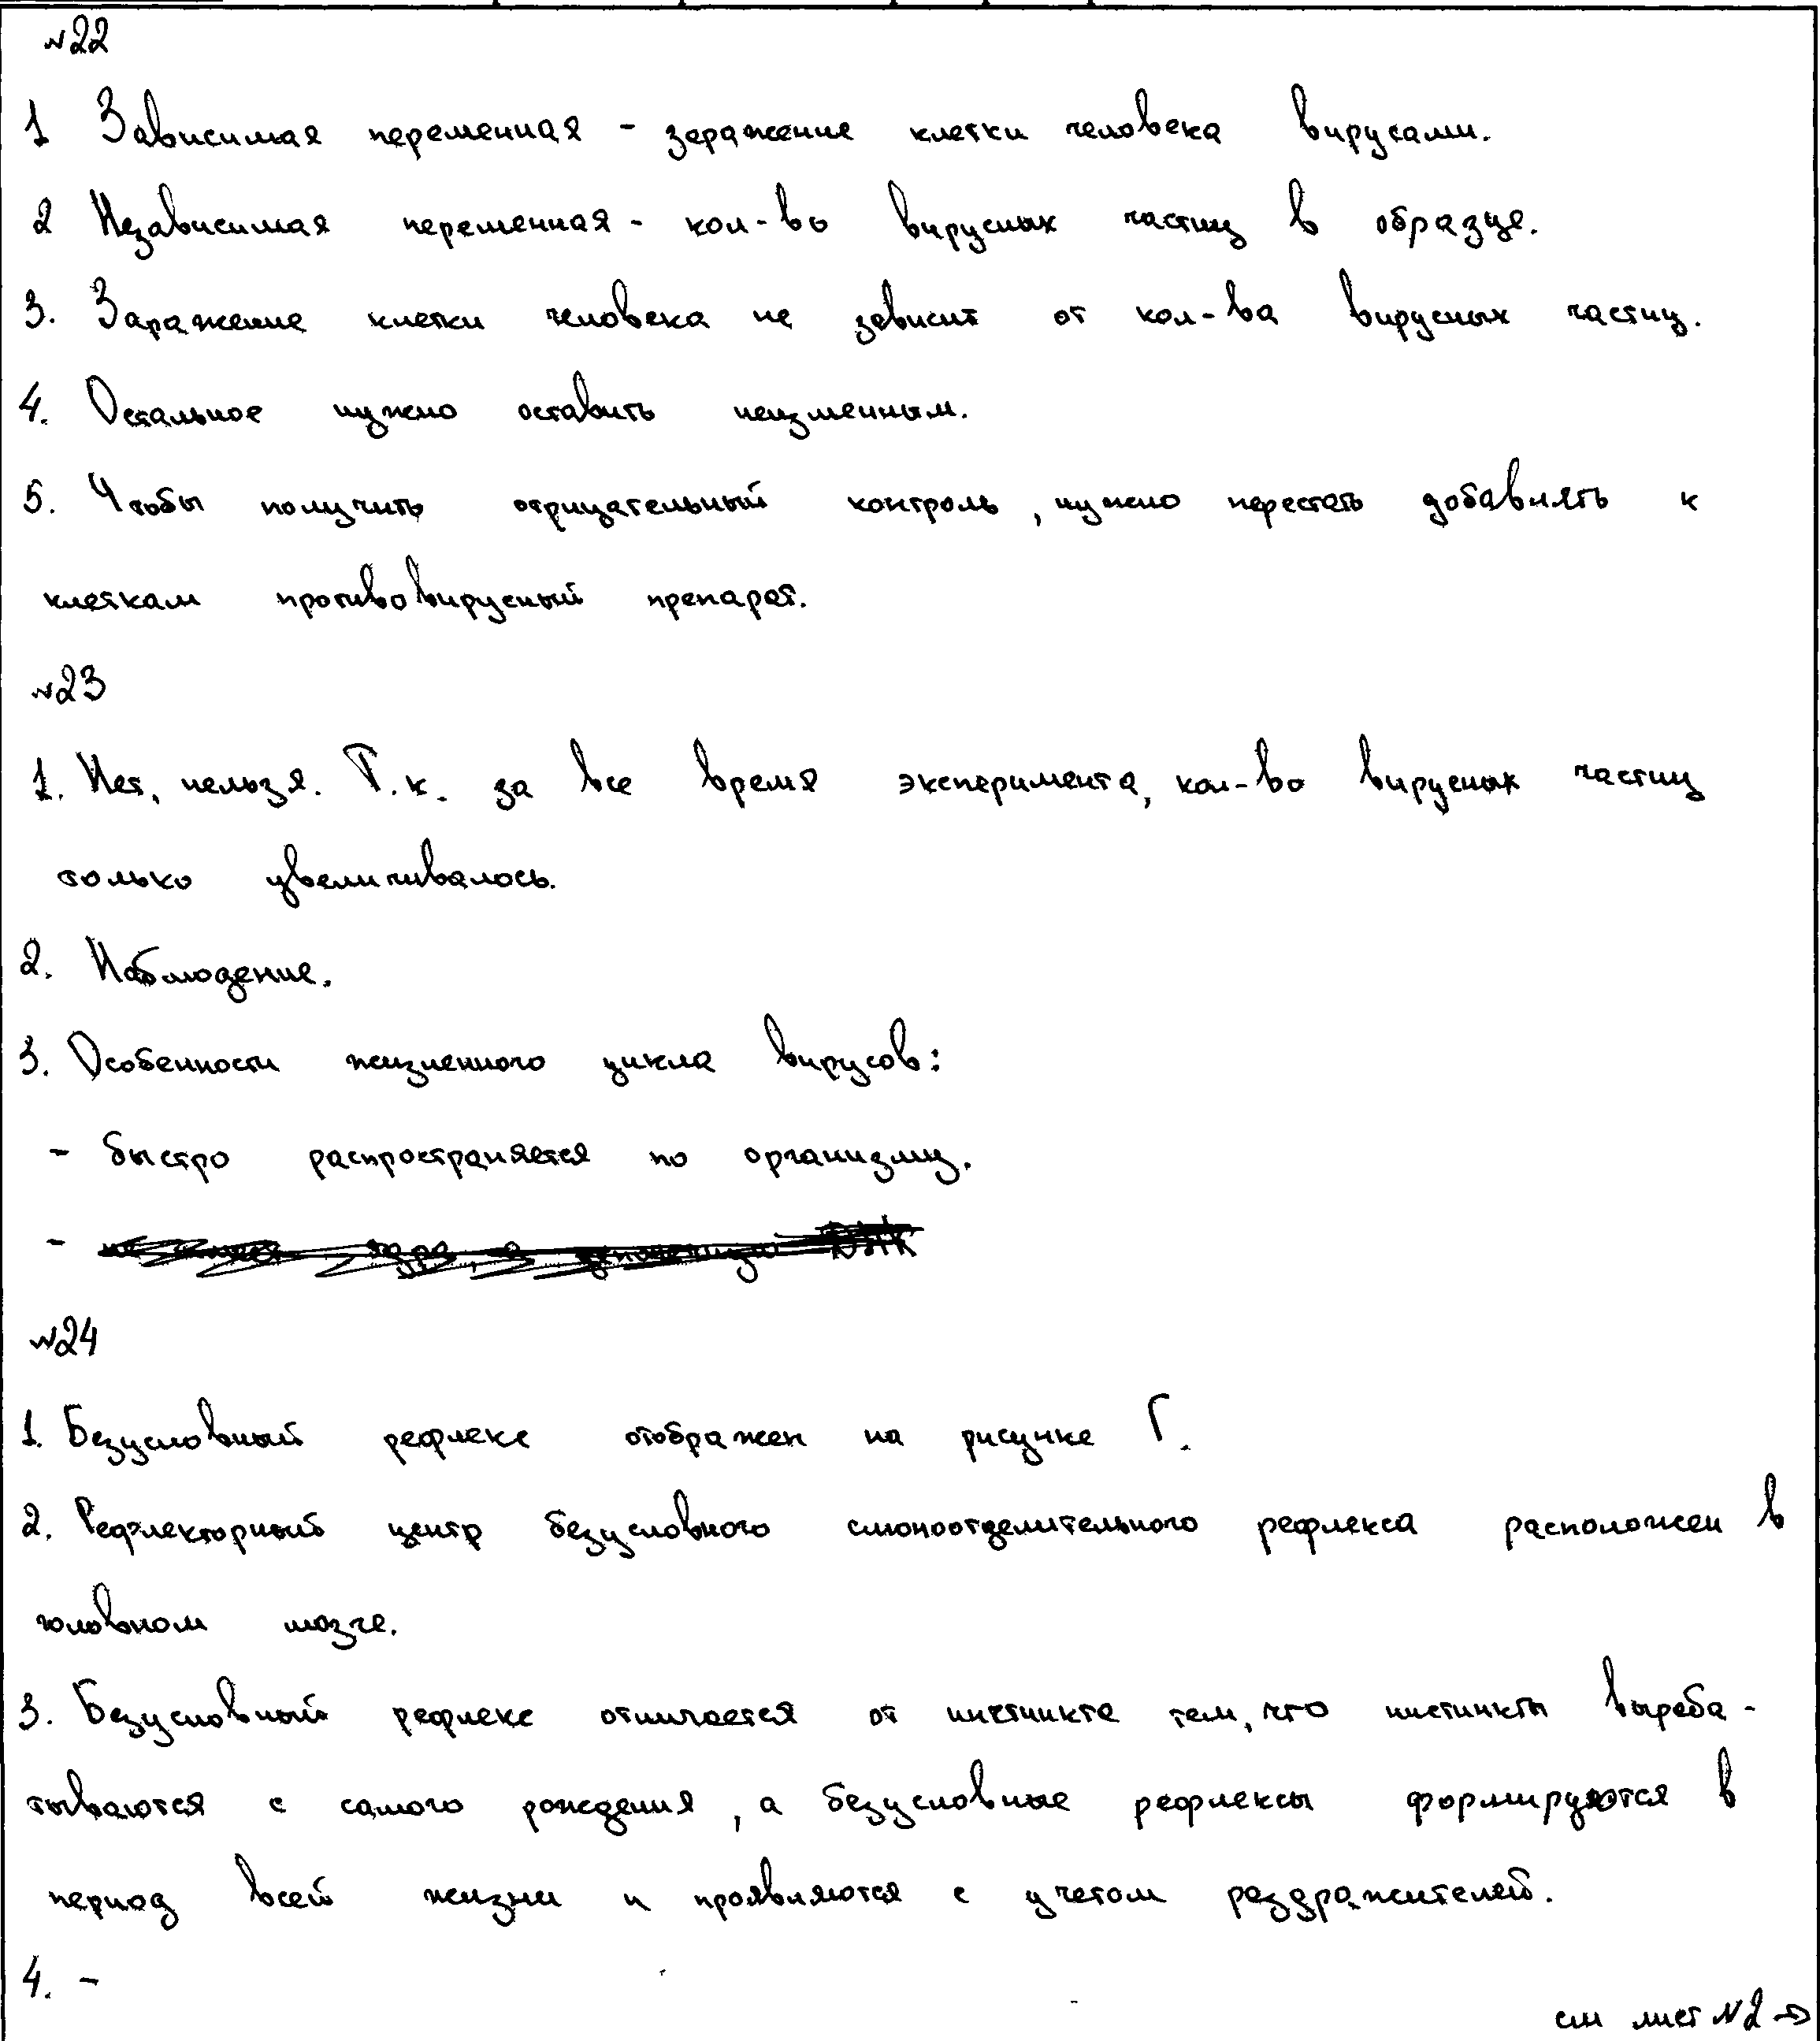 №22
1 Зависимая переменная - заражение клетки человека вирусами.
2 Независимая переменная - кол-во вирусных частиц в образце.
3. Заражение клетки человека не зависит от кол-ва вирусных частиц.
4. Остальное нужно оставить неизменным.
5. Чтобы получить отрицательный контроль, нужно перестать добавлять к
клеткам противовирусный препарат.
№23
1. Нет, нельзя. Т.к. за все время эксперимента, кол-во вирусных частиц
только увеличивалось.
2. Наблюдение.
3. Особенности жизненного цикла вирусов:
- быстро распространяется по организму.
-
№24
1. Безусловный рефлекс отображен на рисунке Г.
2. Рефлекторный центр безусловного слюноотделительного рефлекса расположен в
головном мозге.
3. Безусловный рефлекс отличается от инстинкта тем, что инстинкты выраба-
тываются с самого рождения, а безусловные рефлексы формируются в
период всей жизни и проявляются с учетом раздражителей.
4. -
см лист №2 →